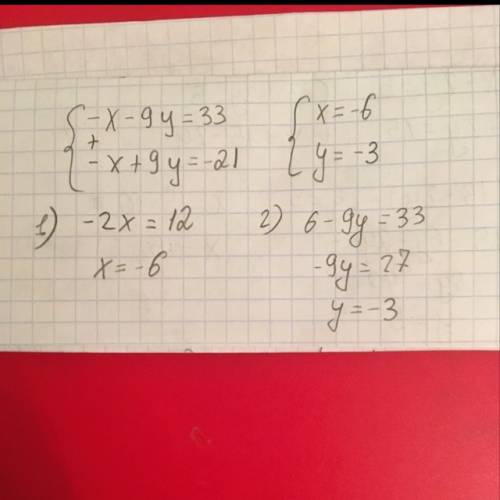 { -x - 9y = 33
+
-x + 9y = -21
{ x = -6
y = -3
1) -2x = 12
x = -6
2) 6 - 9y = 33
-9y = 27
y = -3